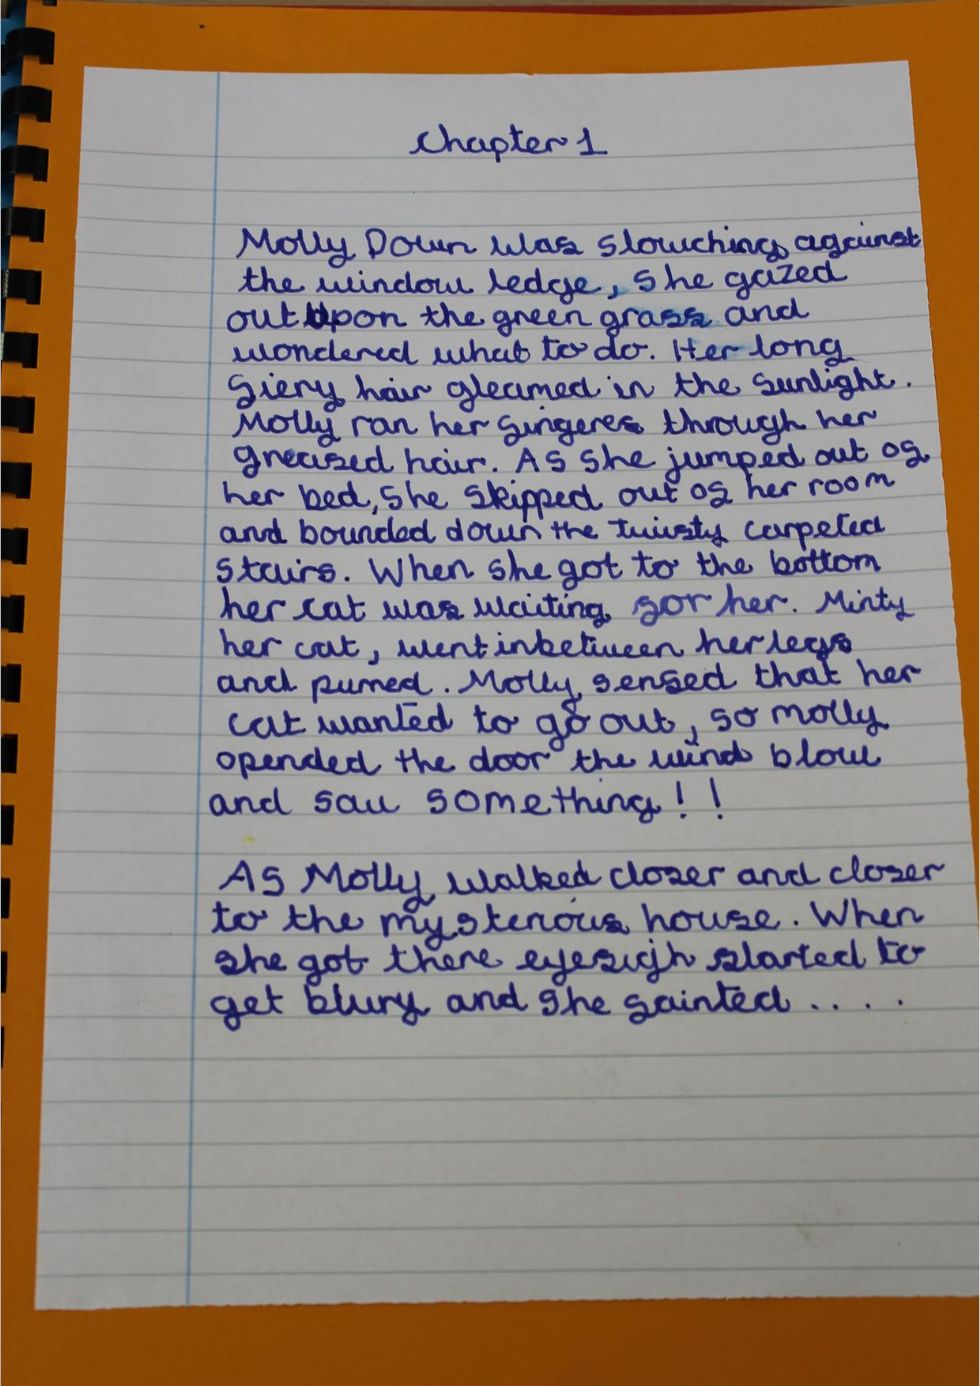 Chapter 1
Molly Down was slouching against
the window ledge, she gazed
out upon the green grass and
wondered what to do. Her long
fiery hair gleamed in the sunlight.
Molly ran her fingeres through her
greased hair. As she jumped out of
her bed, she skipped out of her room
and bounded down the twisty carpeted
stairs. When she got to the bottom
her cat was waiting for her. Minty
her cat, went inbetween her legs
and purred. Molly sensed that her
cat wanted to go out, so molly
opended the door the wind blow
and saw something!!
As Molly walked closer and closer
to the mysterious house. When
she got there eyesigh started to
get blury and she fainted ....